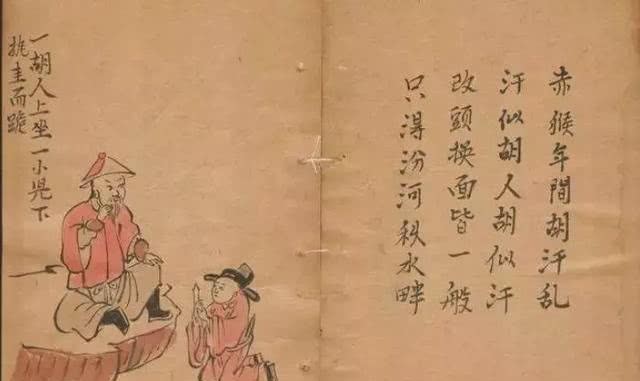 赤猴年間胡汗乱
汗似胡人胡似汗
改頭換面皆一般
只得汾河秋水畔
一胡人上坐一小児下
执圭而跪